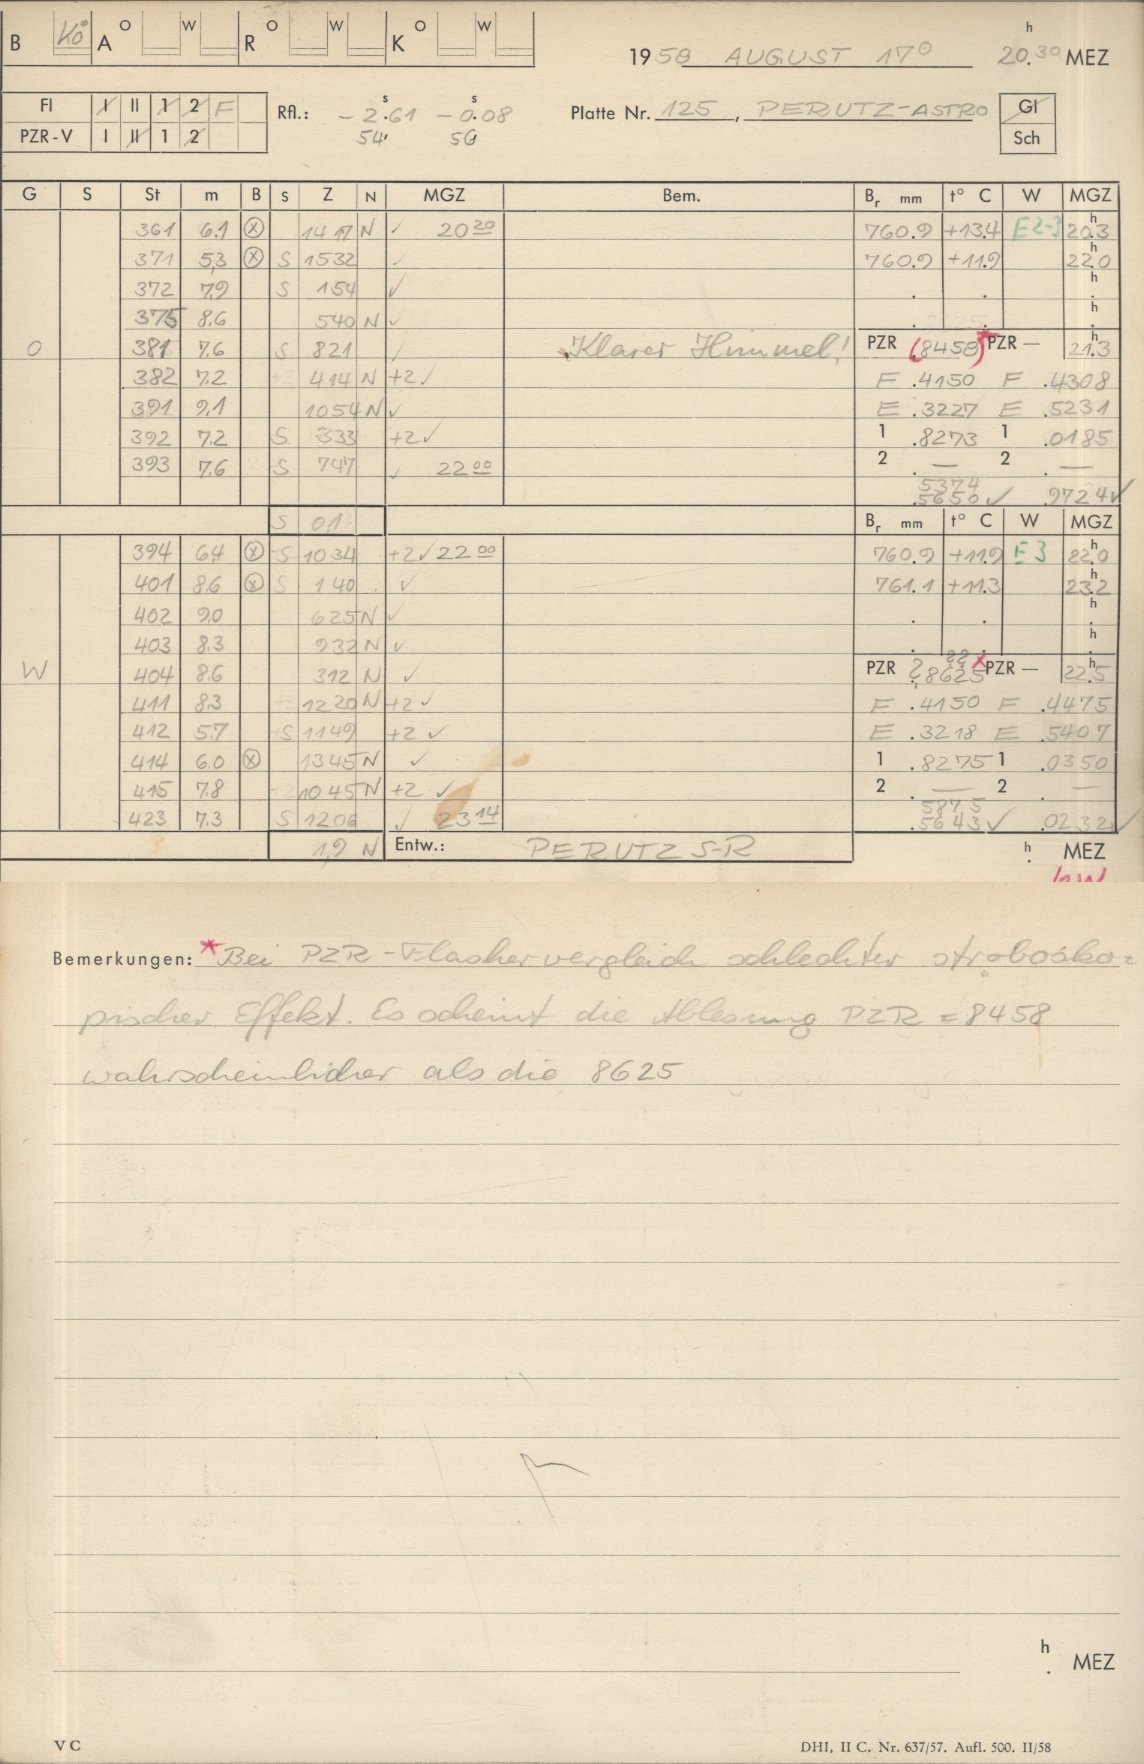 B Kö A O W R O W K O W
1958 AUGUST 17 0 h 20.30 MEZ
FI I II 1 2 F
PZR-V I II 1 2
Rfl.: - 2.61 s - 0.08 s
54
Platte Nr. 125, PERUTZ-ASTRO
Gl
Sch
G S St m B s Z N MGZ Bem. Br mm t° C W MGZ
361 6.1 ⓧ 1417 N ✓ 20 20 760.9 +13.4 E2-3 20.3 h
371 5.3 ⓧ S 1532 ✓ 760.9 +11.9 22.0 h
372 7.9 S 154 ✓ h
375 8.6 540 N ✓ h
O 381 7.6 S 821 ✓ Klarer Himmel! PZR (.8458)* PZR — 21.3 h
382 7.2 414 N +2 ✓ F .4150 F .4308
391 9.1 1054 N ✓ E .3227 E .5231
392 7.2 S 333 +2 ✓ 1 .8273 1 .0185
393 7.6 S 747 ✓ 22 00 2 . — 2 . —
5374
.5650 ✓ .9724 ✓
S 0,1 Br mm t° C W MGZ
394 6.4 ⓧ S 1034 +2 ✓ 22 00 760.9 +11.9 E3 22.0 h
401 8.6 ⓧ S 140 ✓ 761.1 +11.3 23.2 h
402 9.0 625 N ✓ h
403 8.3 932 N ✓ h
W 404 8.6 312 N ✓ PZR ? .8625 ?? x PZR — 22.5 h
411 8.3 1220 N +2 ✓ F .4150 F .4475
412 5.7 S 1149 +2 ✓ E .3218 E .5407
414 6.0 ⓧ 1345 N ✓ 1 .8275 1 .0350
415 7.8 1045 N +2 ✓ 2 . — 2 . —
5875
423 7.3 S 1206 ✓ 23 14 .5643 ✓ .0232 ✓
1,9 N Entw.: PERUTZ S-R h MEZ
Bemerkungen: * Bei PZR-Flashervergleich schlechter strobosko=
pischer Effekt. Es scheint die Ablesung PZR = 8458
wahrscheinlicher als die 8625
h
. MEZ
V C
DHI, II C, Nr. 637/57. Aufl. 500. II/58